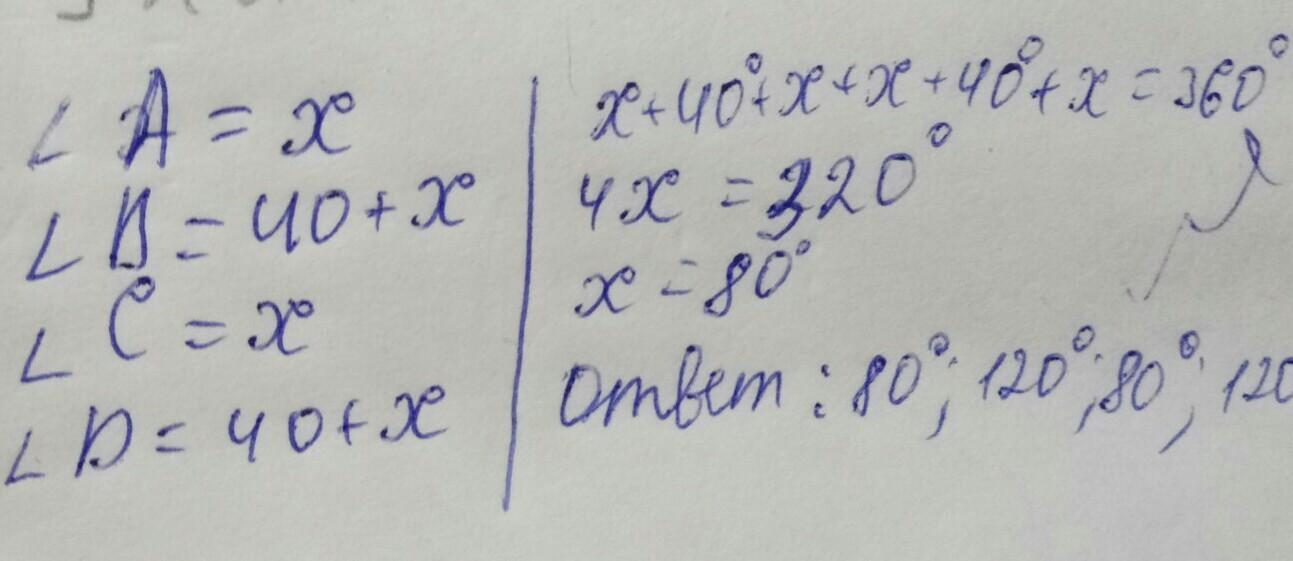 ∠ A = x
∠ B = 40 + x
∠ C = x
∠ D = 40 + x
x + 40° + x + x + 40° + x = 360°
4x = 320°
x = 80°
Ответ : 80°; 120°; 80°; 120